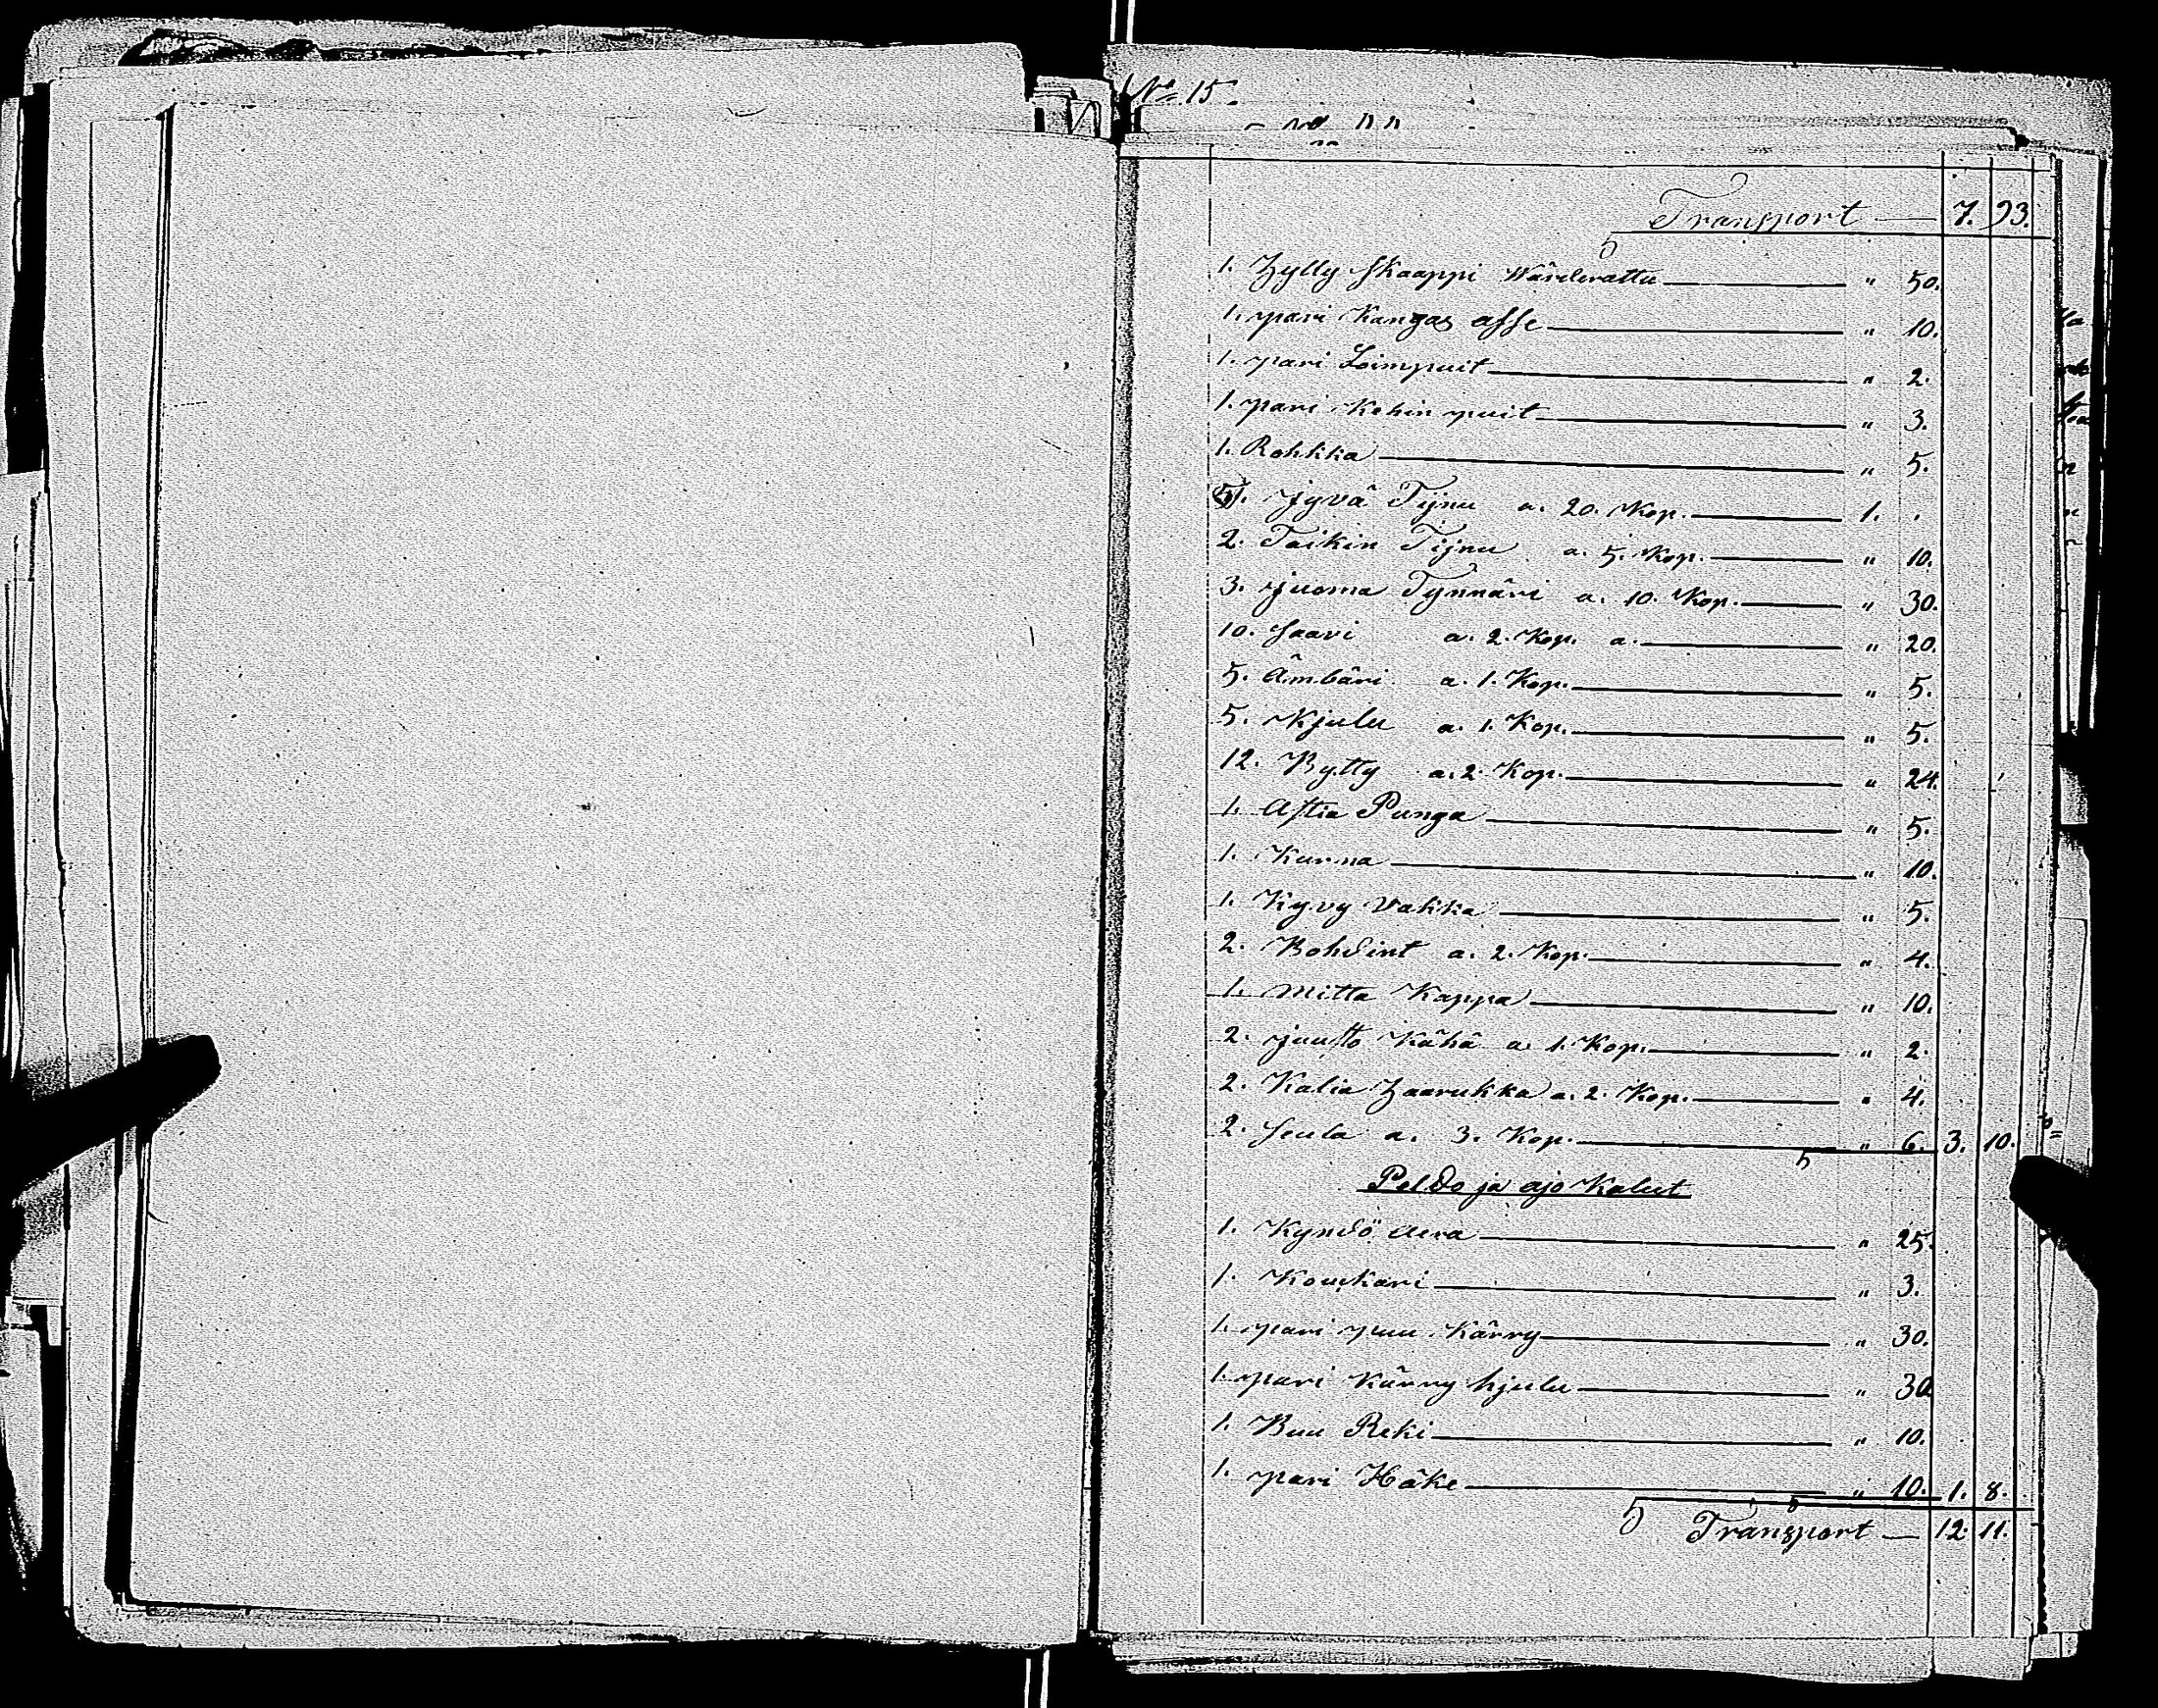 No 15.
Transport — 7. 93.
1. Hylly skaappi Wärderattu — " 50.
1. pari Kangas asse — " 10.
1. pari Loimpuit — " 2.
1. pari Kehin puit — " 3.
1. Rohkka — " 5.
5. Jyvä Tijnu a. 20. Kop. — 1. .
2. Taikin Tijnu a. 5. Kop. — " 10.
3. Juoma Tynnäri a. 10. Kop. — " 30.
10. Saavi a. 2. Kop. a. — " 20.
5. Ämbäri a. 1. Kop. — " 5.
5. Kjulu a. 1. Kop. — " 5.
12. Bytty a. 2. Kop. — " 24.
1. Astia Punga — " 5.
1. Kurna — " 10.
1. Kyvy Vakka — " 5.
2. Bohdint a. 2. Kop. — " 4.
1. Mitta Kappa — " 10.
2. Juusto Kähä a 1. Kop. — " 2.
2. Kalia Haarukka a. 2. Kop. — " 4.
2. Seula a. 3. Kop. — " 6. 3. 10.
Peldo ja ajo Kalut
1. Kyndö aura — " 25.
1. Kouckari — " 3.
1. pari puu Kärry — " 30.
1. pari Kärry hjulu — " 30
1. Buu Reki — " 10.
1. pari Häke — " 10. 1. 8.
Transport — 12. 11.